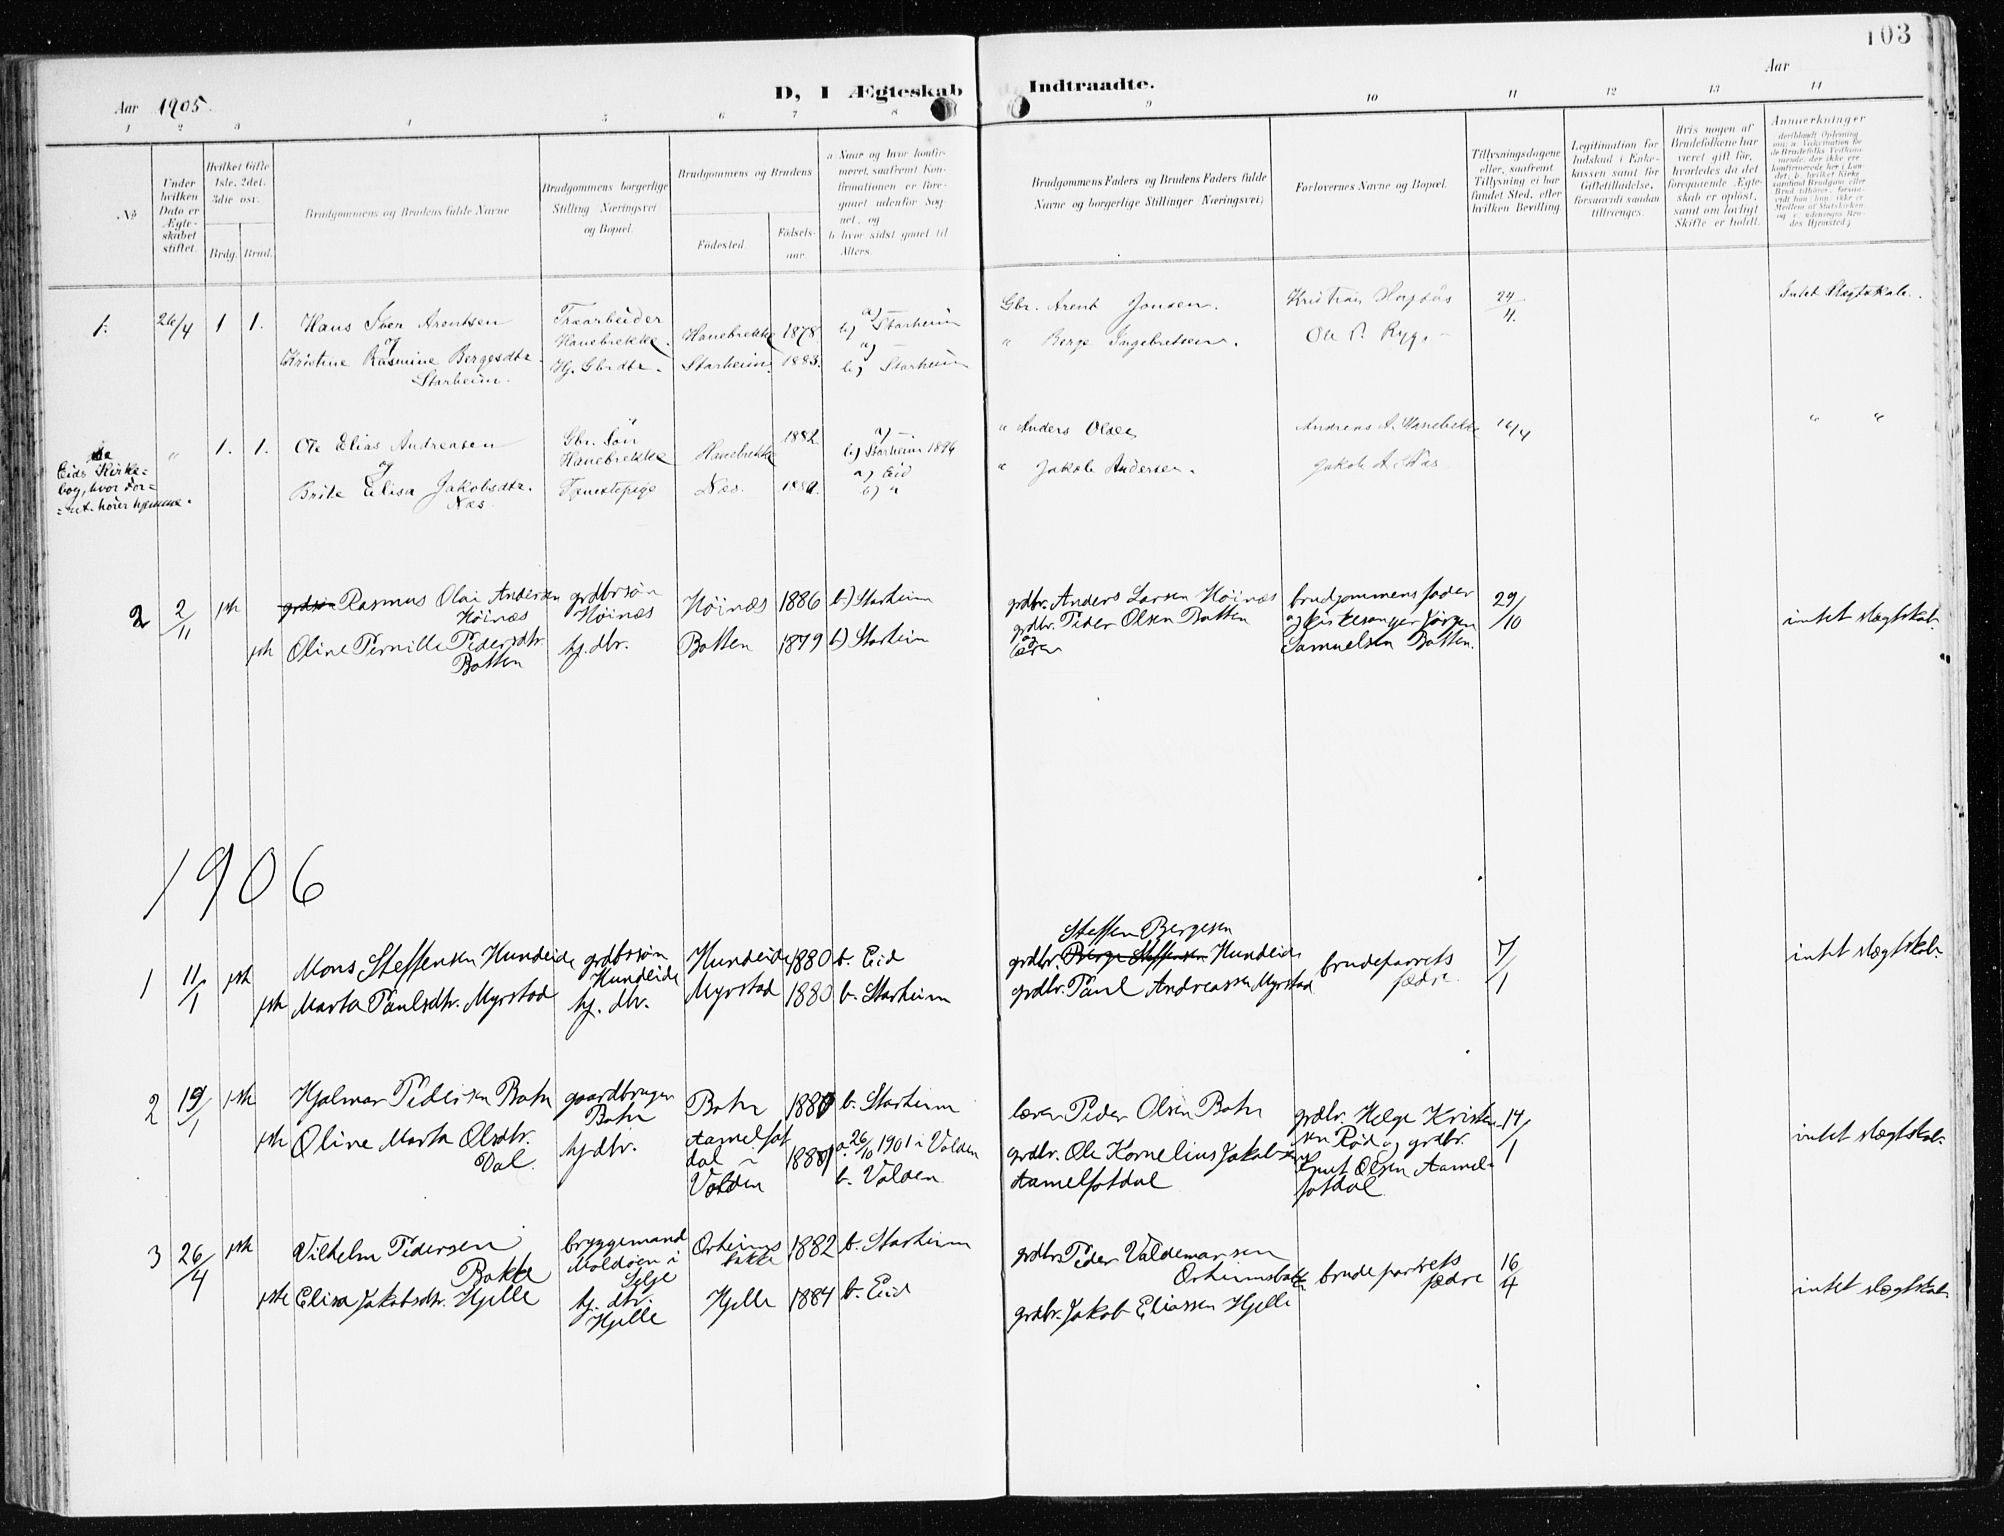 103
Aar 1905.
D, I Ægteskab Indtraadte.
Aar
1 2 3 4 5 6 7 8 9 10 11 12 13 14
No
Under hvilken Dato er Ægteskabet stiftet.
Hvilket Gifte 1ste, 2det, 3die osv.
Brdg. Brud.
Brudgommens og Brudens fulde Navne
Brudgommens borgerlige Stilling Næringsvei og Bopæl.
Brudgommens og Brudens
Fødested.
Fødselsaar.
a Naar og hvor konfirmeret, saafremt Konfirmationen er foregaaet udenfor Sognet, og
b hvor sidst gaaet til Alters.
Brudgommens Faders og Brudens Faders fulde Navne og borgerlige Stillinger Næringsvei)
Forlovernes Navne og Bopæl.
Tillysningsdagene eller, saafremt Tillysning ei har fundet Sted, efter hvilken Bevilling
Legitimation for Indskud i Enkekassen samt for Giftetilladelse, forsaavidt saadan tiltrænges.
Hvis nogen af Brudefolkene har været gift før, hvorledes da det foregaaende Ægteskab er opløst, samt om lovligt Skifte er holdt.
Anmærkninger
1. 26/4 1 1. Hans Iver Arentsen Træarbeider Hanebrekke. Hanebrekke 1878. a) — b) Starheim Gbr. Arent Jonsen. Kristian 24/4. Intet Slægtskab.
og
Kristine Rasmine Bergesdtr. Starheim. Hj. Gbrdtr. Starheim. 1883. a) — b) Starheim " Berge Ingebretsen. Ole P.
Eids Kirkebog, hvor hører hjemme. " 1. 1. Ole Elias Andreasen Gbr. Søn Hanebrekke Hanebrekke 1882 a) — b) Starheim 1896 " Anders Olsen Andreas A. Hanebrekke 16/4 " "
og
Brite Elisa Jakobsdtr. Næs. Tjenestepige Næs. a) Eid b) " " Jakob Andersen. Jakob A. Næs
2 2/11 1ste Rasmus Olai Andersen Höinæs grdbrsøn Höinæs Höinæs 1886 b) Starheim grdbr. Anders Larsen Höinæs brudgommens fader 29/10 intet slægtskab.
1ste Oline Pernille Pedersdtr. Botten hj. dtr. Botten 1879 b) Starheim grdbr. Peder Olsen Botten og kirkesanger Jørgen Samuelsen Botten.
1906
1 11/1 1ste Mons Steffensen Hundeide grdbrsøn Hundeide Hundeide 1880 b. Eid grdbr. Steffen Bergesen Hundeide brudeparrets fædre. 7/1 intet slægtskab.
1ste Marta Paulsdtr. Myrstad hj. dtr. Myrstad 1880 b. Starheim grdbr. Paul Andreassen Myrstad
2 19/1 1ste Hjalmar Pedersen Botn gaardbruger Botn Botn 1880 b. Starheim lærer Peder Olsen Botn grdbr. Helge Kristensen Röd og grdbr. Knut Olsen Aamelfotdal 14/1 intet slægtskab.
1ste Oline Marta Olsdtr. Dal. hj. dtr. Aamelfotdal i Volden 1881 a. 26/10 1901 i Volden b. Volden grdbr. Ole Kornelius Jakobsen Aamelfotdal
3 26/4 1ste Vilhelm Pedersen Bakke bryggemand Moldøen i Selje Orheimsbakke 1882 b. Starheim grdbr. Peder Valdemarsen Orheimsbakke brudeparrets fædre 16/4 intet slægtskab.
1ste Elisa Jakobsdtr. Hjelle hj. dtr. Hjelle Hjelle 1884 b. Eid grdbr. Jakob Eliassen Hjelle